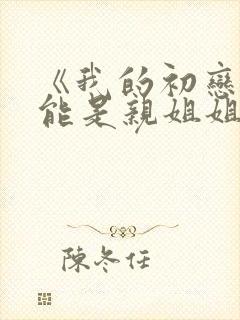 《我的初戀
能是親姐姐
陳冬任